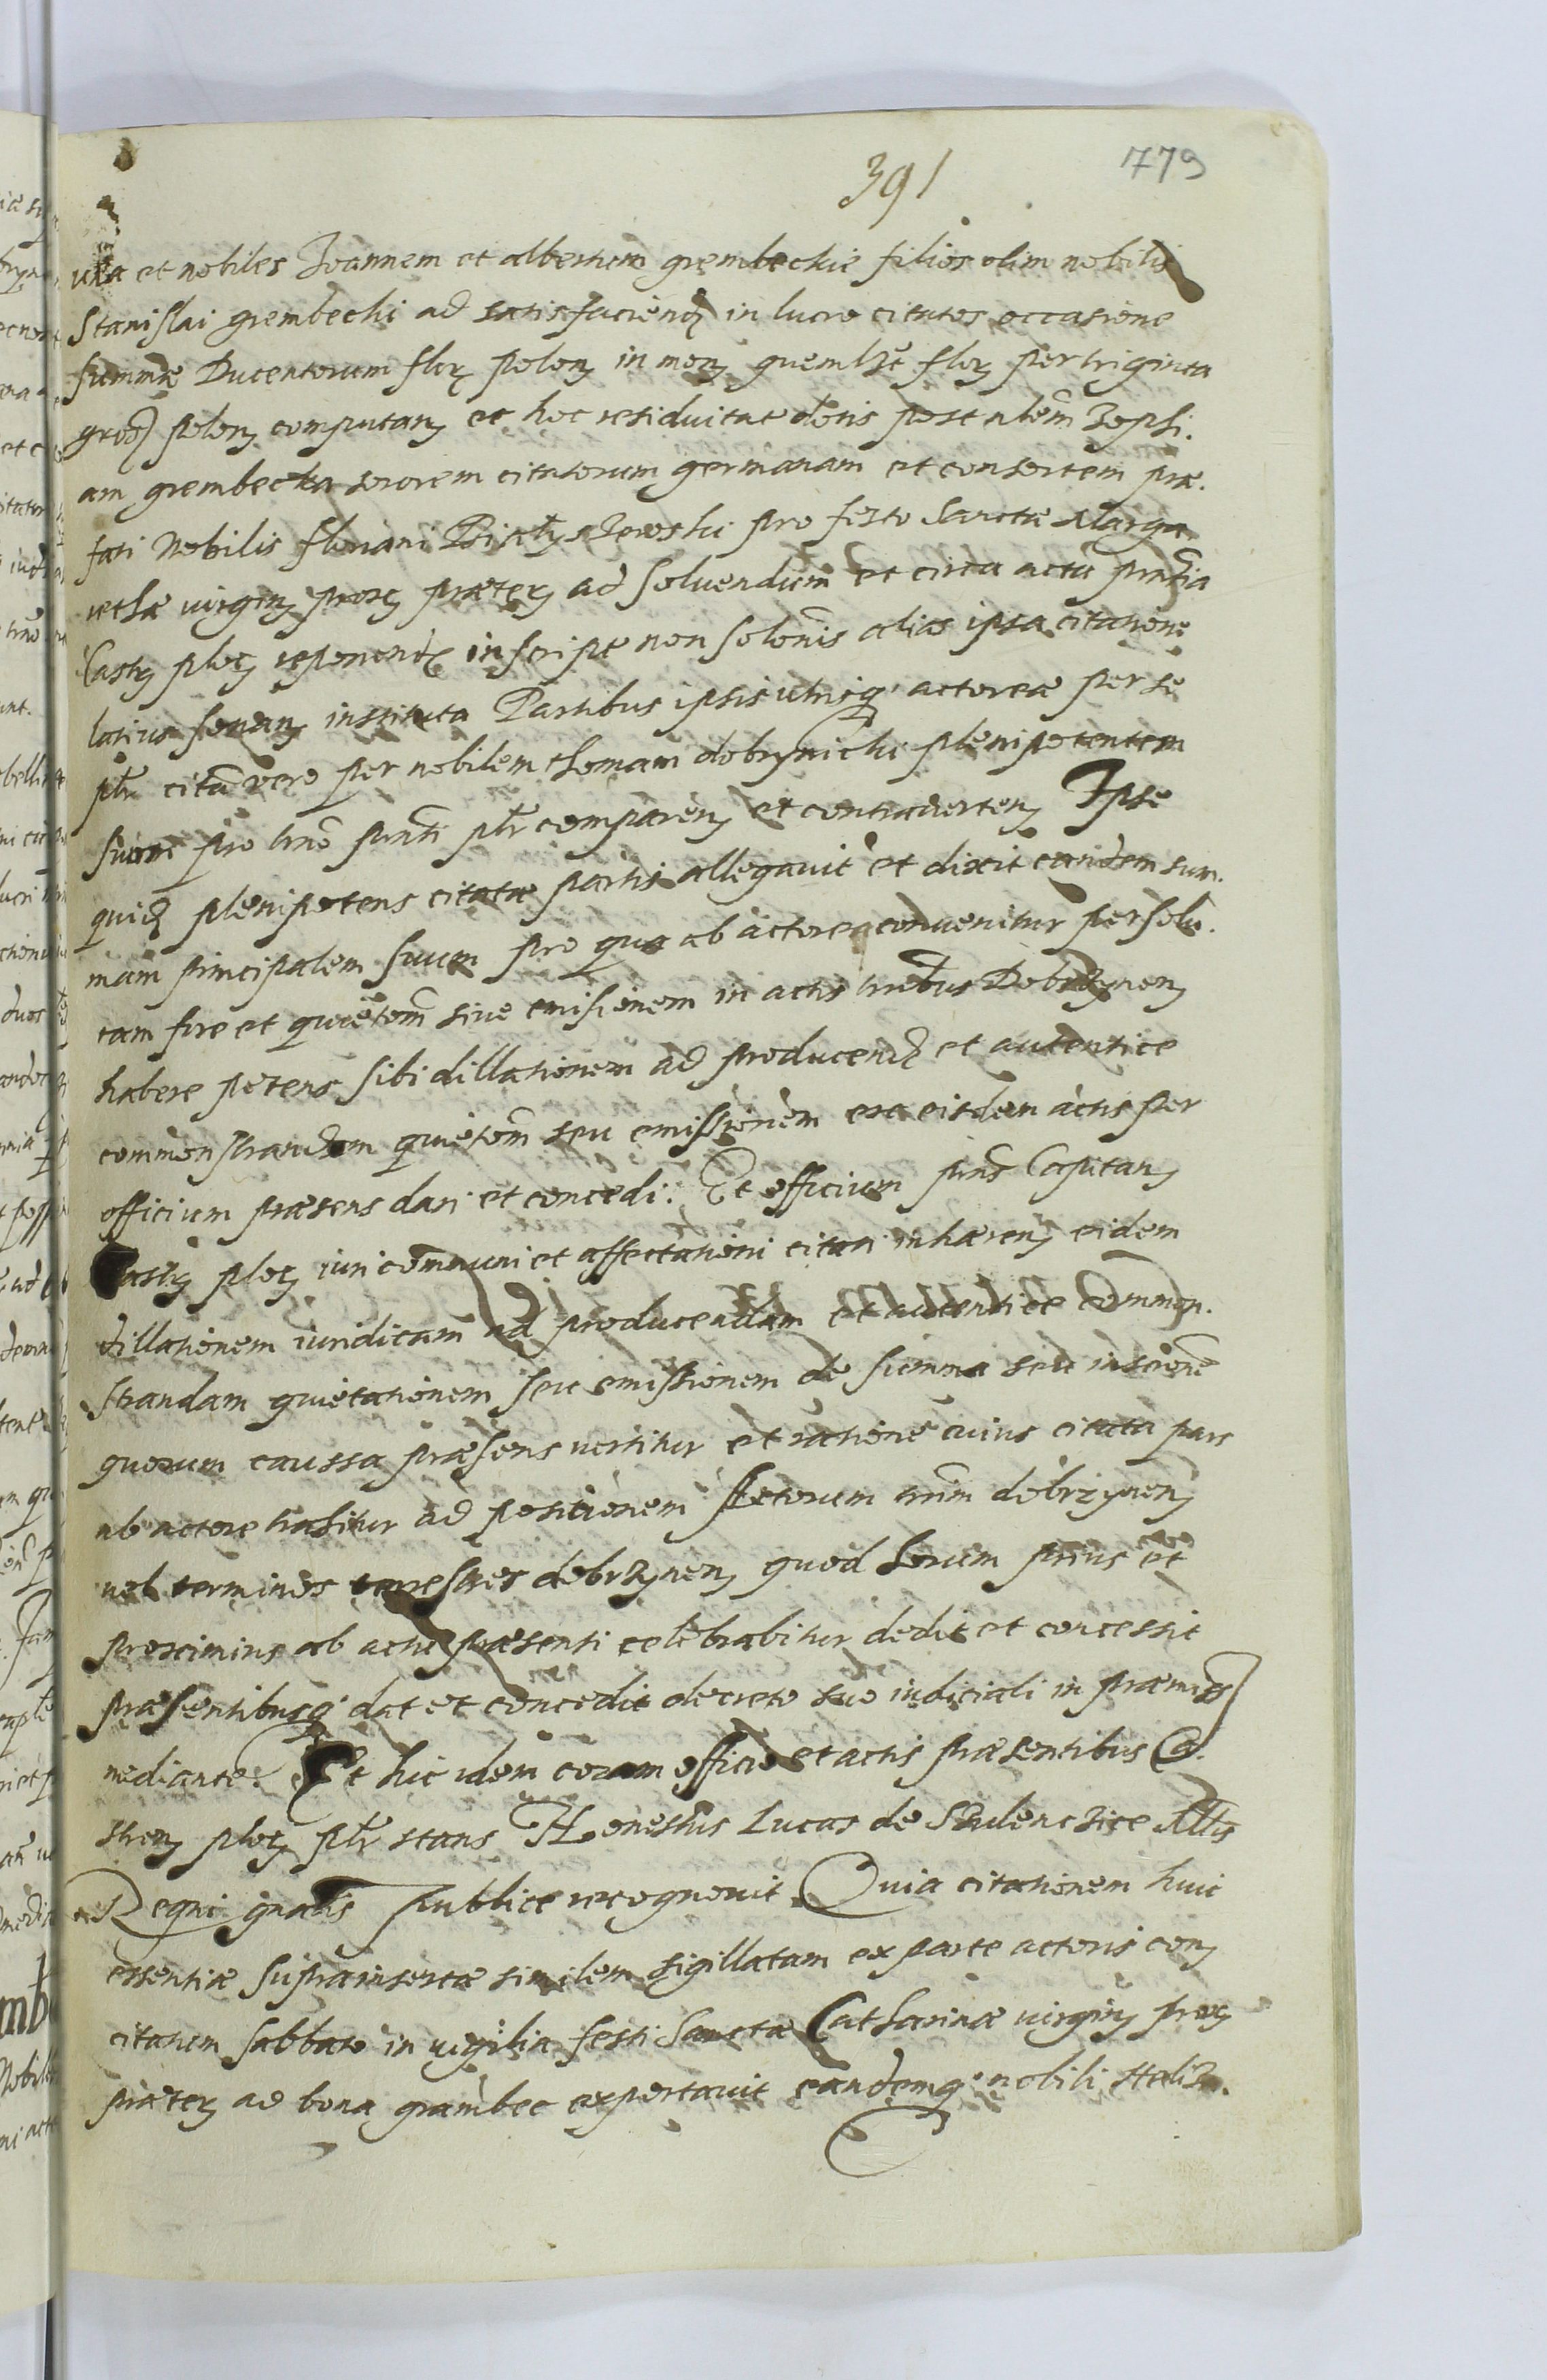 391
779
una et nobiles Joannem et albertum grembeckie filios olim nobilis
Stanislai grembecki ad satisfaciend in lucro citatos occasione
summæ Ducentorum flor polon in mon quemlz flor per triginta
gros polon computan et hoc residuitat dotis post nblem Zophi.
am grembecka sororem citatorum germanam et consortem præ.
fati Nobilis floriani pro festo Sanctæ Marga.
rethæ virgin prox præter ad solvendum et circa acta prntia
Castr ploc reponend inscript non solonis alias ipsa citatione
latius sonan instituta Partibus ipsis utrisq actorea per se
ptr citta vero per nobilem thomam dobrynicki plenipotentem
suum pro trno prnti ptr comparen et contraverten Ipse
quid plenipotens citatæ partis allegavit et dixit eandem sum.
mam principalem suum pro qua ab actorea convenitur persolu.
tam fore et quietem sive emissionem in actis trrbus Dobrzynen
habere petens sibi dillationem ad producend et autentice
commonstrandam quietem seu emissionem ex eisdem actis per
officium præsens dari et concedi. Et officium prns Capitan
Castr ploc iuri communi et affectationi citati inhæren eidem
dillationem iuridicam ad producendam et autentice common.
strandam quietationem seu emissionem de summa seu inscrione
quorum caussa præsens vertitur et ratione cuius citata pars
ab actore trahitur ad positionem Actorum trrm dobrzynen
vel terminos terrestres dobrzynen quod horum prius et
proscimius ab actu præsenti celebrabitur dedit et concessit
præsentibusq dat et concedit decreto suo iudiciali in præmiss
mediante. Et hic idem coram officio et actis præsentibus Ca.
stren ploc ptr stans Honestus Lucas de Mtis
Regni gnalis publice recognovit Quia citationem huic
essentiæ suprainsertæ similem sigillatam ex parte actoris con
citatum Sabbato in vigilia festi Sanctæ Catharinæ virgin prox
præter ad bona grambec exportavit eandemq nobili